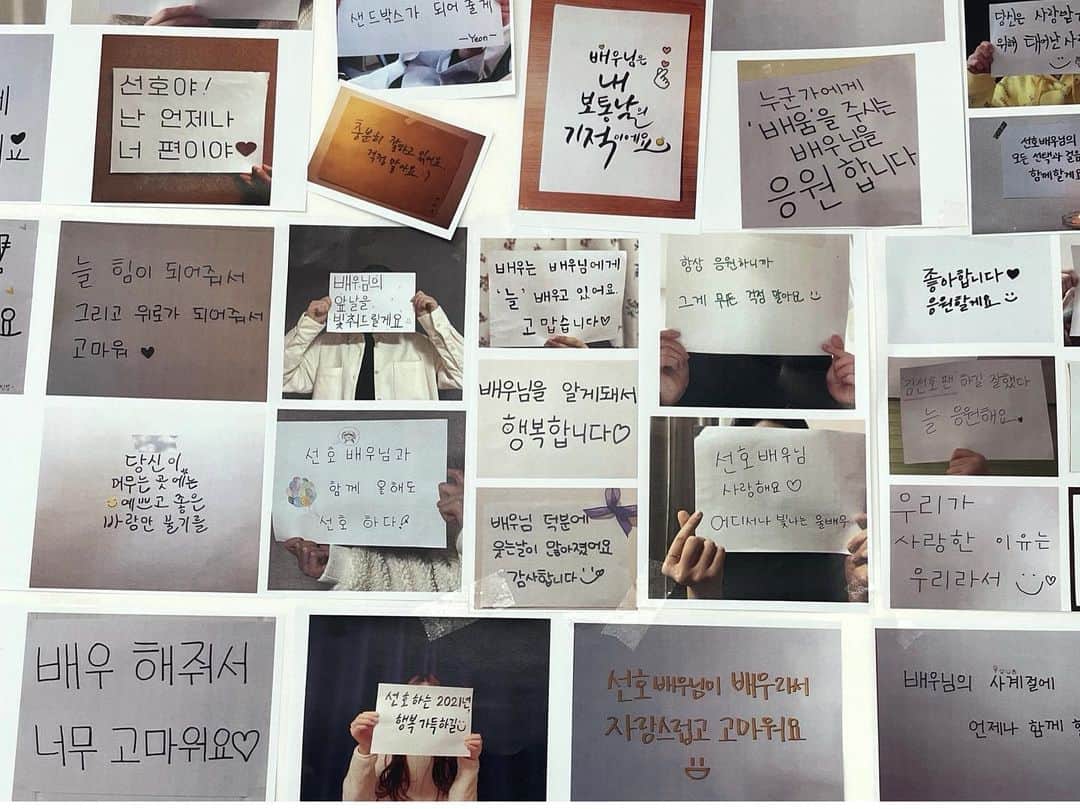 샌드박스가 되어 줄게
-Yeon-
선호야!
난 언제나
너 편이야♥
충분히 잘하고 있어요.
걱정 말아요 :)
배우님은
내
보통날의
기적이에요
누군가에게
'배움'을 주시는
배우님을
응원합니다
당신은 사랑받기
위해 태어난 사
선호배우님의
모든 선택과 걸음
함께할게요
늘 힘이 되어줘서
그리고 위로가 되어줘서
고마워 ♥
배우님의
앞날을
빛춰드릴게요
배우는 배우님에게
'늘' 배우고 있어요.
고맙습니다♡
항상 응원하니까
그게 뭐든 걱정 말아요
좋아합니다♥
응원할게요
배우님을 알게돼서
행복합니다♡
김선호 팬 하길 잘했다
늘 응원해요
당신이
머무는 곳에는
예쁘고 좋은
바람만 불기를
선호 배우님과
함께 올해도
선호 하다!
배우님 덕분에
웃는날이 많아졌어요
감사합니다
선호 배우님
사랑해요 ♡
어디서나 빛나는 울배우
우리가
사랑한 이유는
우리라서
배우 해줘서
너무 고마워요♡
선호하는 2021년,
행복 가득하길
선호배우님이 배우라서
자랑스럽고 고마워요
배우님의 사계절에
언제나 함께